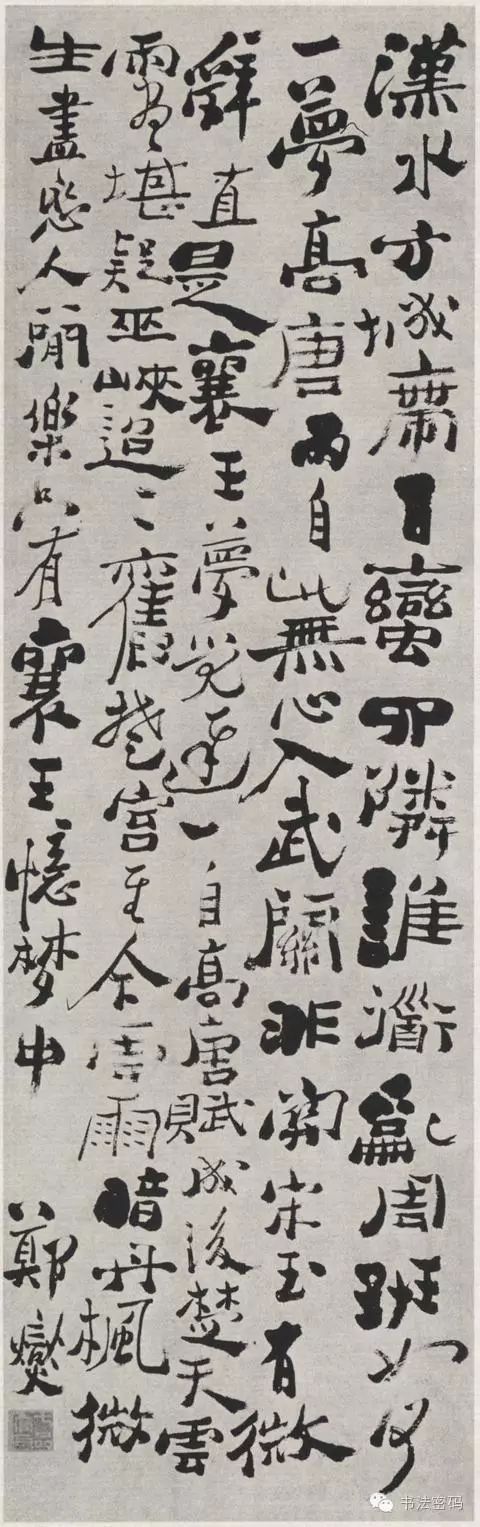 漢水方城帶百蠻四隣誰道亂周班如何
一夢高唐雨自此無心入武關非關宋玉有微
辭直是襄王夢覺遲一自高唐賦成後楚天雲
雨盡堪疑巫峽迢〻舊楚宮至今雲雨暗丹楓微
生盡戀人間樂只有襄王憶梦中
鄭燮
书法密码